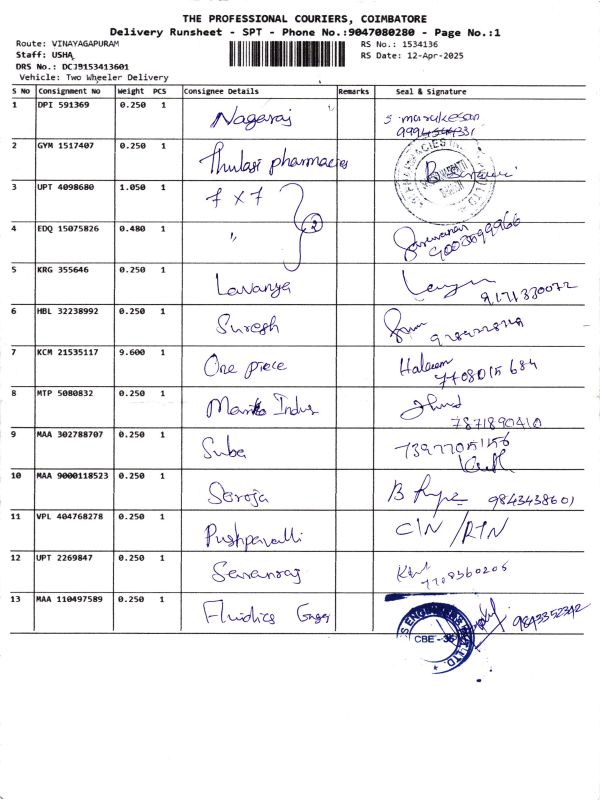 THE PROFESSIONAL COURIERS, COIMBATORE
Delivery Runsheet - SPT - Phone No.:9047080280 - Page No.:1
Route: VINAYAGAPURAM
Staff: USHA
DRS No.: DCJB153413601
Vehicle: Two Wheeler Delivery
RS No.: 1534136
RS Date: 12-Apr-2025
S No Consignment No Weight PCS Consignee Details Remarks Seal & Signature
1 DPI 591369 0.250 1 Nagaraj
2 GYM 1517407 0.250 1 Thulasi pharmacies
3 UPT 4098680 1.050 1 7 x 7
2
4 EDQ 15075826 0.480 1 "
9003699966
5 KRG 355646 0.250 1 Lavanya
9171330072
6 HBL 32238992 0.250 1 Suresh
7 KCM 21535117 9.600 1 One piece Haleem
7708015684
8 MTP 5080832 0.250 1
7871890410
9 MAA 302788707 0.250 1 Suba
10 MAA 9000118523 0.250 1 Saroja 9843438601
11 VPL 404768278 0.250 1 Pushpavalli C/N /RTN
12 UPT 2269847 0.250 1 Saranraj
7708360206
13 MAA 110497589 0.250 1 Fluidics 9843352342
CBE - 35